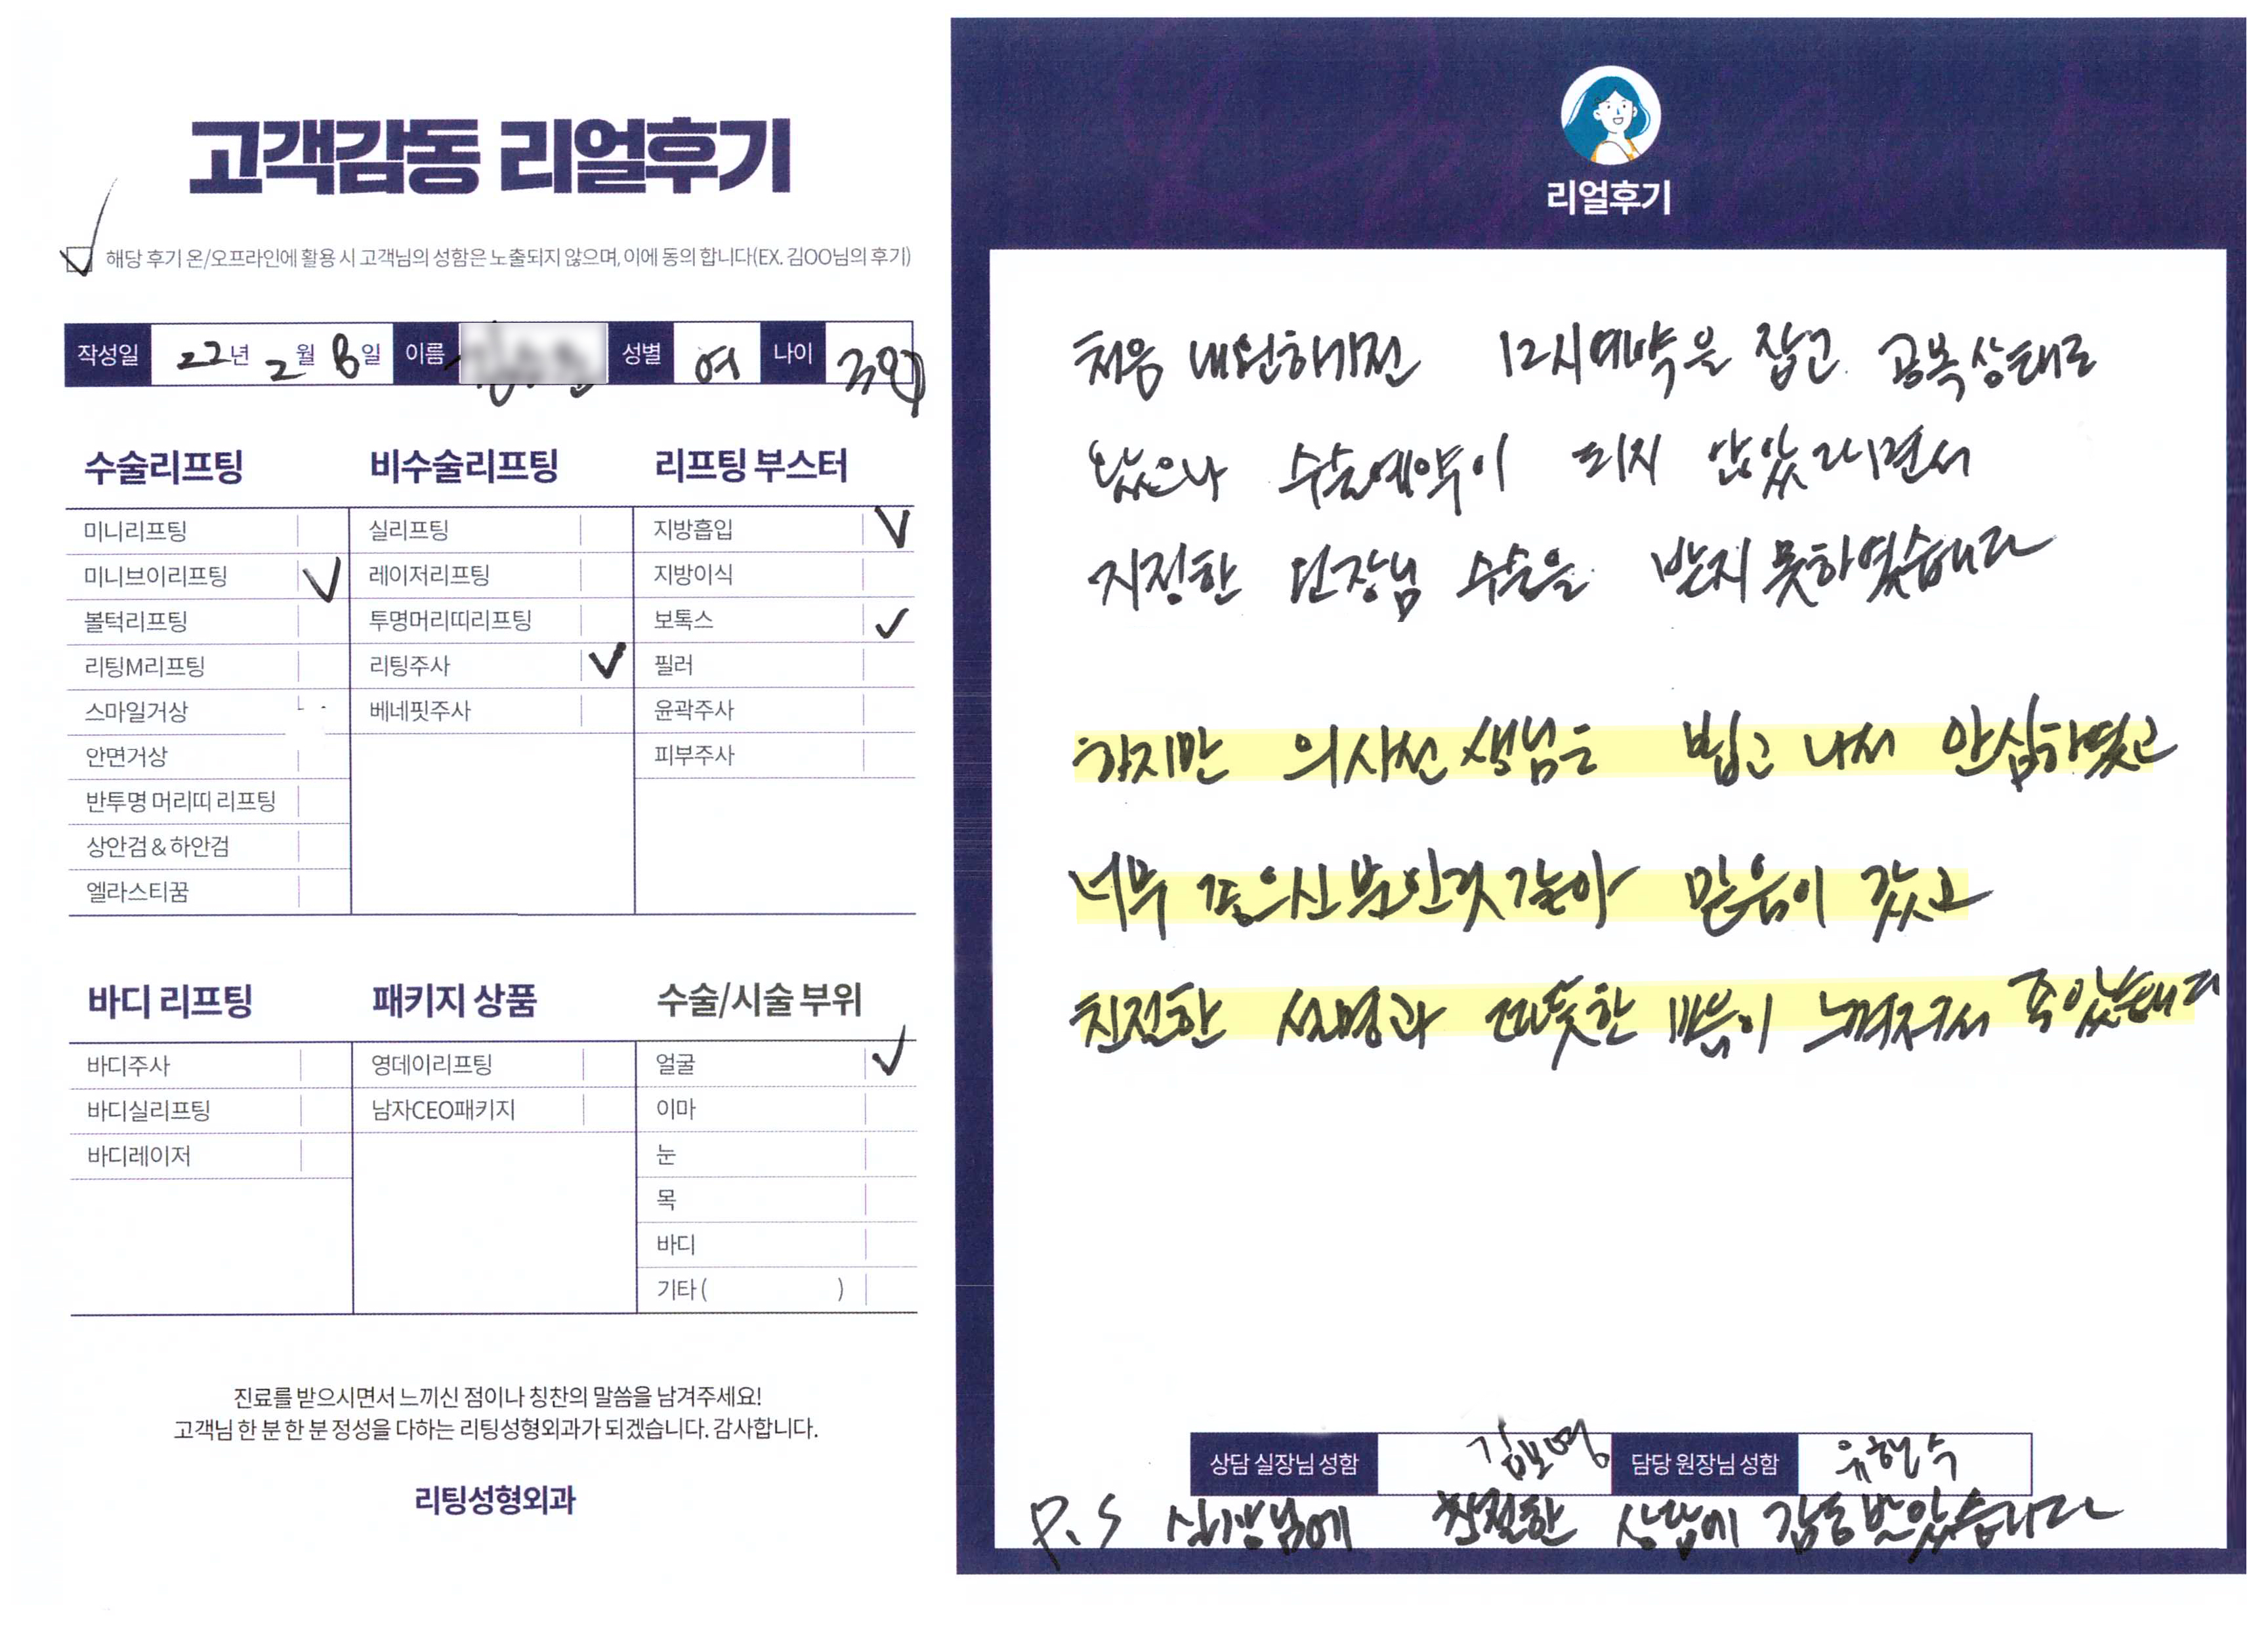 고객감동 리얼후기
해당 후기 온/오프라인에 활용 시 고객님의 성함은 노출되지 않으며, 이에 동의 합니다(EX. 김OO님의 후기)
작성일 22년 2월 일 이름 성별 여 나이
수술리프팅
미니리프팅
미니브이리프팅
볼턱리프팅
리팅M리프팅
스마일거상
안면거상
반투명 머리띠 리프팅
상안검 & 하안검
엘라스티꿈
비수술리프팅
실리프팅
레이저리프팅
투명머리띠리프팅
리팅주사
베네핏주사
리프팅 부스터
지방흡입
지방이식
보톡스
필러
윤곽주사
피부주사
바디 리프팅
바디주사
바디실리프팅
바디레이저
패키지 상품
영데이리프팅
남자CEO패키지
수술/시술 부위
얼굴
이마
눈
목
바디
기타 ( )
진료를 받으시면서 느끼신 점이나 칭찬의 말씀을 남겨주세요!
고객님 한 분 한 분 정성을 다하는 리팅성형외과가 되겠습니다. 감사합니다.
리팅성형외과
리얼후기
처음 내원하기전 12시예약을 잡고 공복상태로
왔으나 수술예약이 되지 않았다면서
지정한 날 수술을 받지 못하였습니다
하지만 의사선생님을 뵙고 나서 안심하였고
너무 좋으신분인것같아 믿음이 갔고
친절한 설명과 따뜻한 마음이 느껴져서 좋았습니다
상담 실장님 성함 김보명 담당 원장님 성함 유현수
P.S 실장님에 친절한 상담에 감동받았습니다